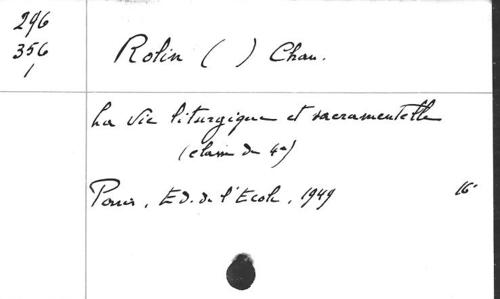 296
356
1
Rolin ( ) Chan.
La vie liturgique et sacramentelle
(classe de 4e)
Paris, Ed. de l'Ecole, 1949 16°